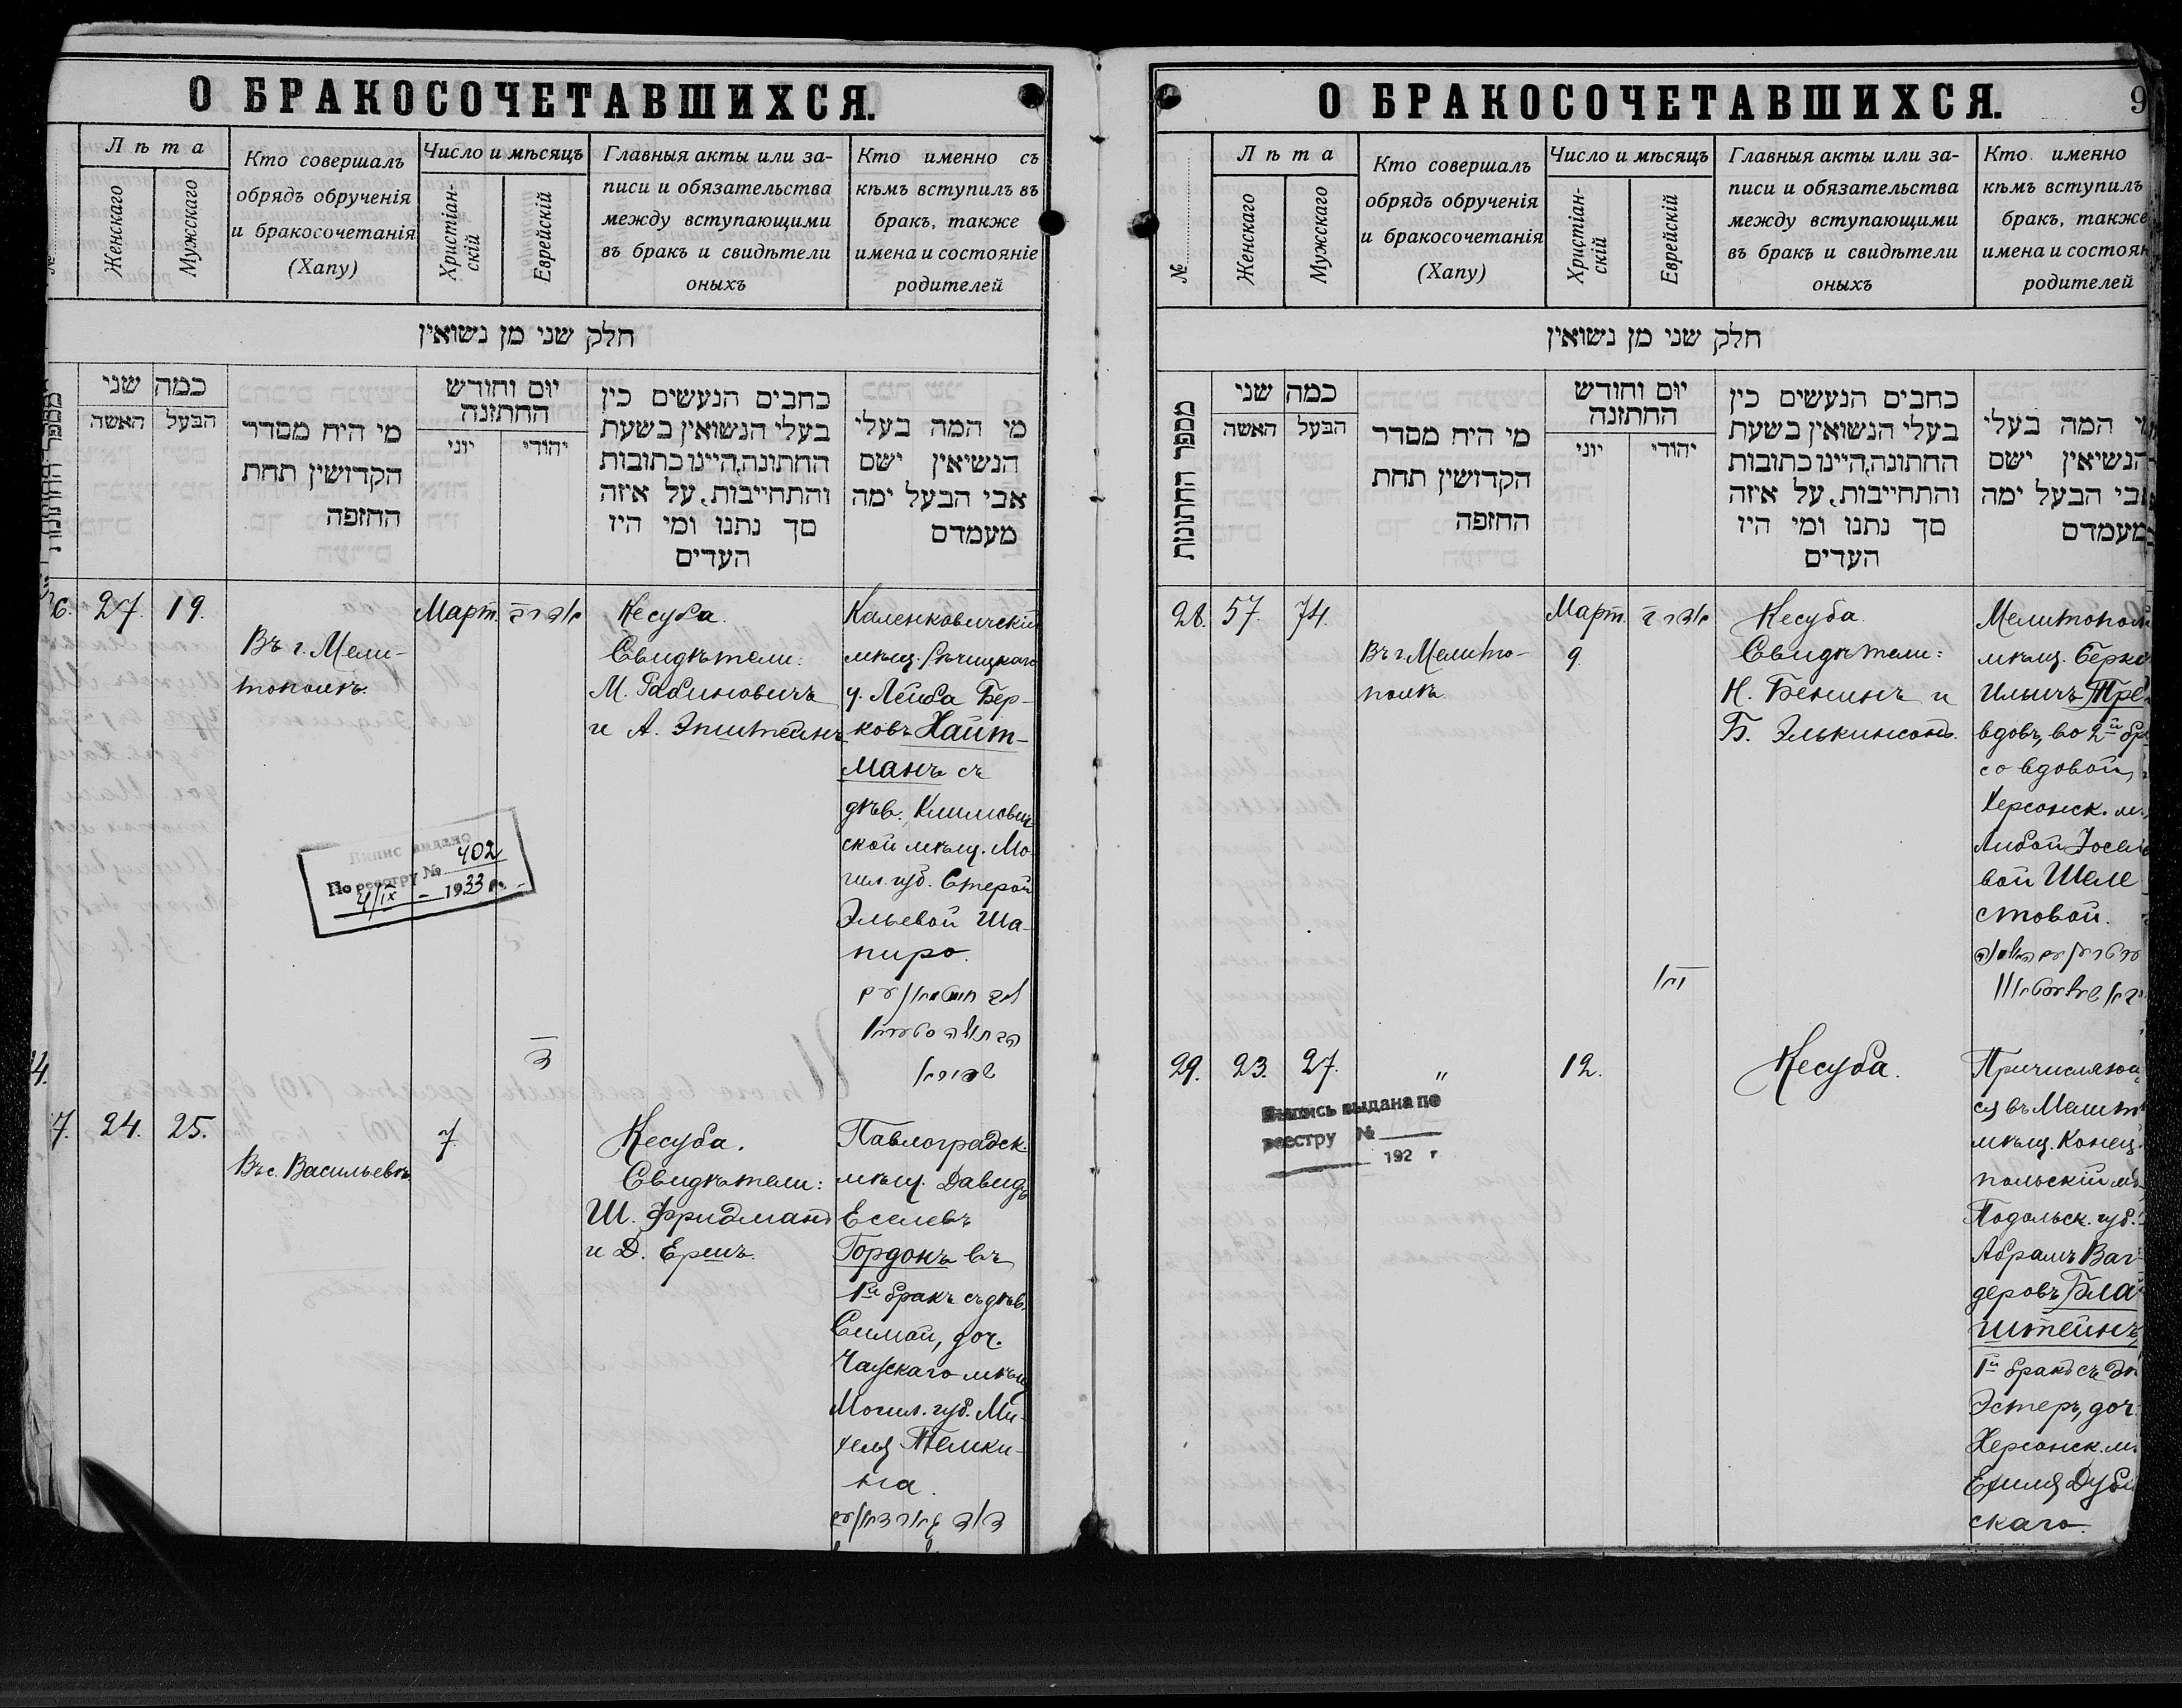 О БРАКОСОЧЕТАВШИХСЯ.
Лѣта
Женскаго
Мужскаго
Кто совершалъ
обрядъ обрученія
и бракосочетанія
(Хапу)
Число и мѣсяцъ
Христіан-
скій
Еврейскій
Главныя акты или за-
писи и обязательства
между вступающими
въ бракъ и свидѣтели
оныхъ
Кто именно съ
кѣмъ вступилъ въ
бракъ, также
имена и состояніе
родителей
חלק שני מן נשואין
כמה שני
הבעל האשה
מי היח מסדר
הקדושין תחת
החופה
יום וחודש
החתונה
יהודי יוני
כתבים הנעשים כין
בעלי הנשואין בשעת
החתונה, היינו כתובות
והתחייבות, על איזה
סך נתנו ומי היו
העדים
מי המה בעלי
הנשיאין ישם
אבי הבעל ימה
מעמדם
6. 27. 19.
Въ г. Мели-
тополѣ.
Март.
Кесуба.
Свидѣтели:
М. Рабиновичъ
и А. Эпштейнъ
Каленковичскій
мѣщ. Рѣчицкаго
у. Лейба Бер-
ковъ Хайт-
манъ съ
дѣв. Климович
ской мѣщ. Мо-
гил. губ. Стерой
Эльевой Ша-
пиро.
Випис видано
По реестру № 402
4/IX – 1933 г.
7. 24. 25.
Въ с. Васильевкѣ
7.
Кесуба.
Свидѣтели:
Ш. Фридманъ
и Д. Ершъ.
Павлоградск.
мѣщ. Давидъ
Еселевъ
Гордонъ въ
1й бракъ съ дѣв.
Симой, доч.
Чаускаго мѣщ
Могил. губ. Ми-
хеля Темки-
на.
О БРАКОСОЧЕТАВШИХСЯ.
9
№
Лѣта
Женскаго
Мужскаго
Кто совершалъ
обрядъ обрученія
и бракосочетанія
(Хапу)
Число и мѣсяцъ
Христіан-
скій
Еврейскій
Главныя акты или за-
писи и обязательства
между вступающими
въ бракъ и свидѣтели
оныхъ
Кто именно
кѣмъ вступилъ
бракъ, также
имена и состоян
родителей
חלק שני מן נשואין
מספר החתונות
כמה שני
הבעל האשה
מי היח מסדר
הקדושין תחת
החופה
יום וחודש
החתונה
יהודי יוני
כתבים הנעשים כין
בעלי הנשואין בשעת
החתונה, היינו כתובות
והתחייבות, על איזה
סך נתנו ומי היו
העדים
מי המה בעלי
הנשיאין ישם
אבי הבעל ימה
מעמדם
28. 57. 74.
Въ г. Мелито-
полѣ
Март.
9.
Кесуба.
Свидѣтели:
Н. Бенинъ и
Б. Элькинсонъ.
Мелитопол
мѣщ. Берко
Ильичъ Тре
вдовъ, во 2й бра
со вдовой,
Херсонск. м
Либой Іосел
вой Шеле
стовой.
29. 23. 27.
"
12.
Выпись выдана по
реестру №
192 г
Кесуба.
Причисляющ
ся въ Мелит
мѣщ. Конец
польскій мѣ
Подольск. губ.
Абрамъ Ваг-
деровъ Бла
штейнъ,
1й бракъ съ дѣ
Эстеръ, доч.
Херсонск. м.
Ехиля Дуби
скаго.